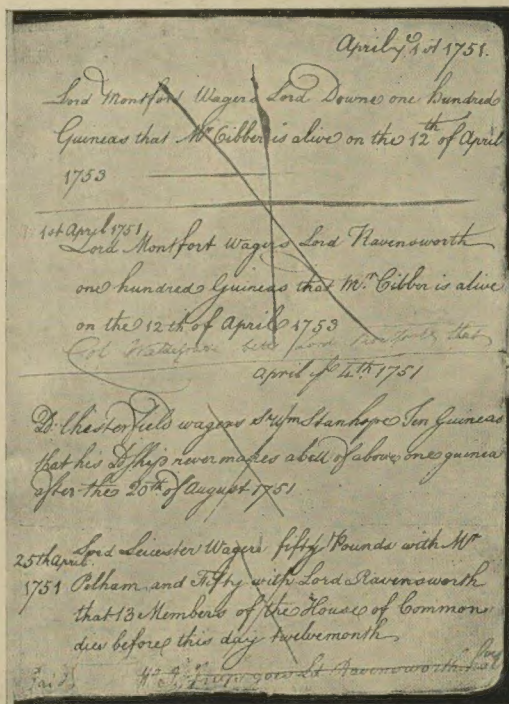 April ye 1st 1751.
Lord Montfort Wagers Lord Downe one hundred
Guineas that Mr Cibber is alive on the 12th of April
1753
1st April 1751
Lord Montfort wagers Lord Ravensworth
one hundred Guineas that Mr. Cibber is alive
on the 12th of April 1753
Col betts Lord that
April ye 4th 1751
Ld. Chesterfield wagers Sr Wm Stanhope Ten Guineas
that his Ldship never makes a bett of above one guinea
after the 20th of August 1751
25th April
1751
Lord Leicester Wagers fifty Pounds with Mr
Pelham and Fifty with Lord Ravensworth
that 13 Members of the House of Common
dies before this day twelvemonth
Paid
Ld Ravensworth